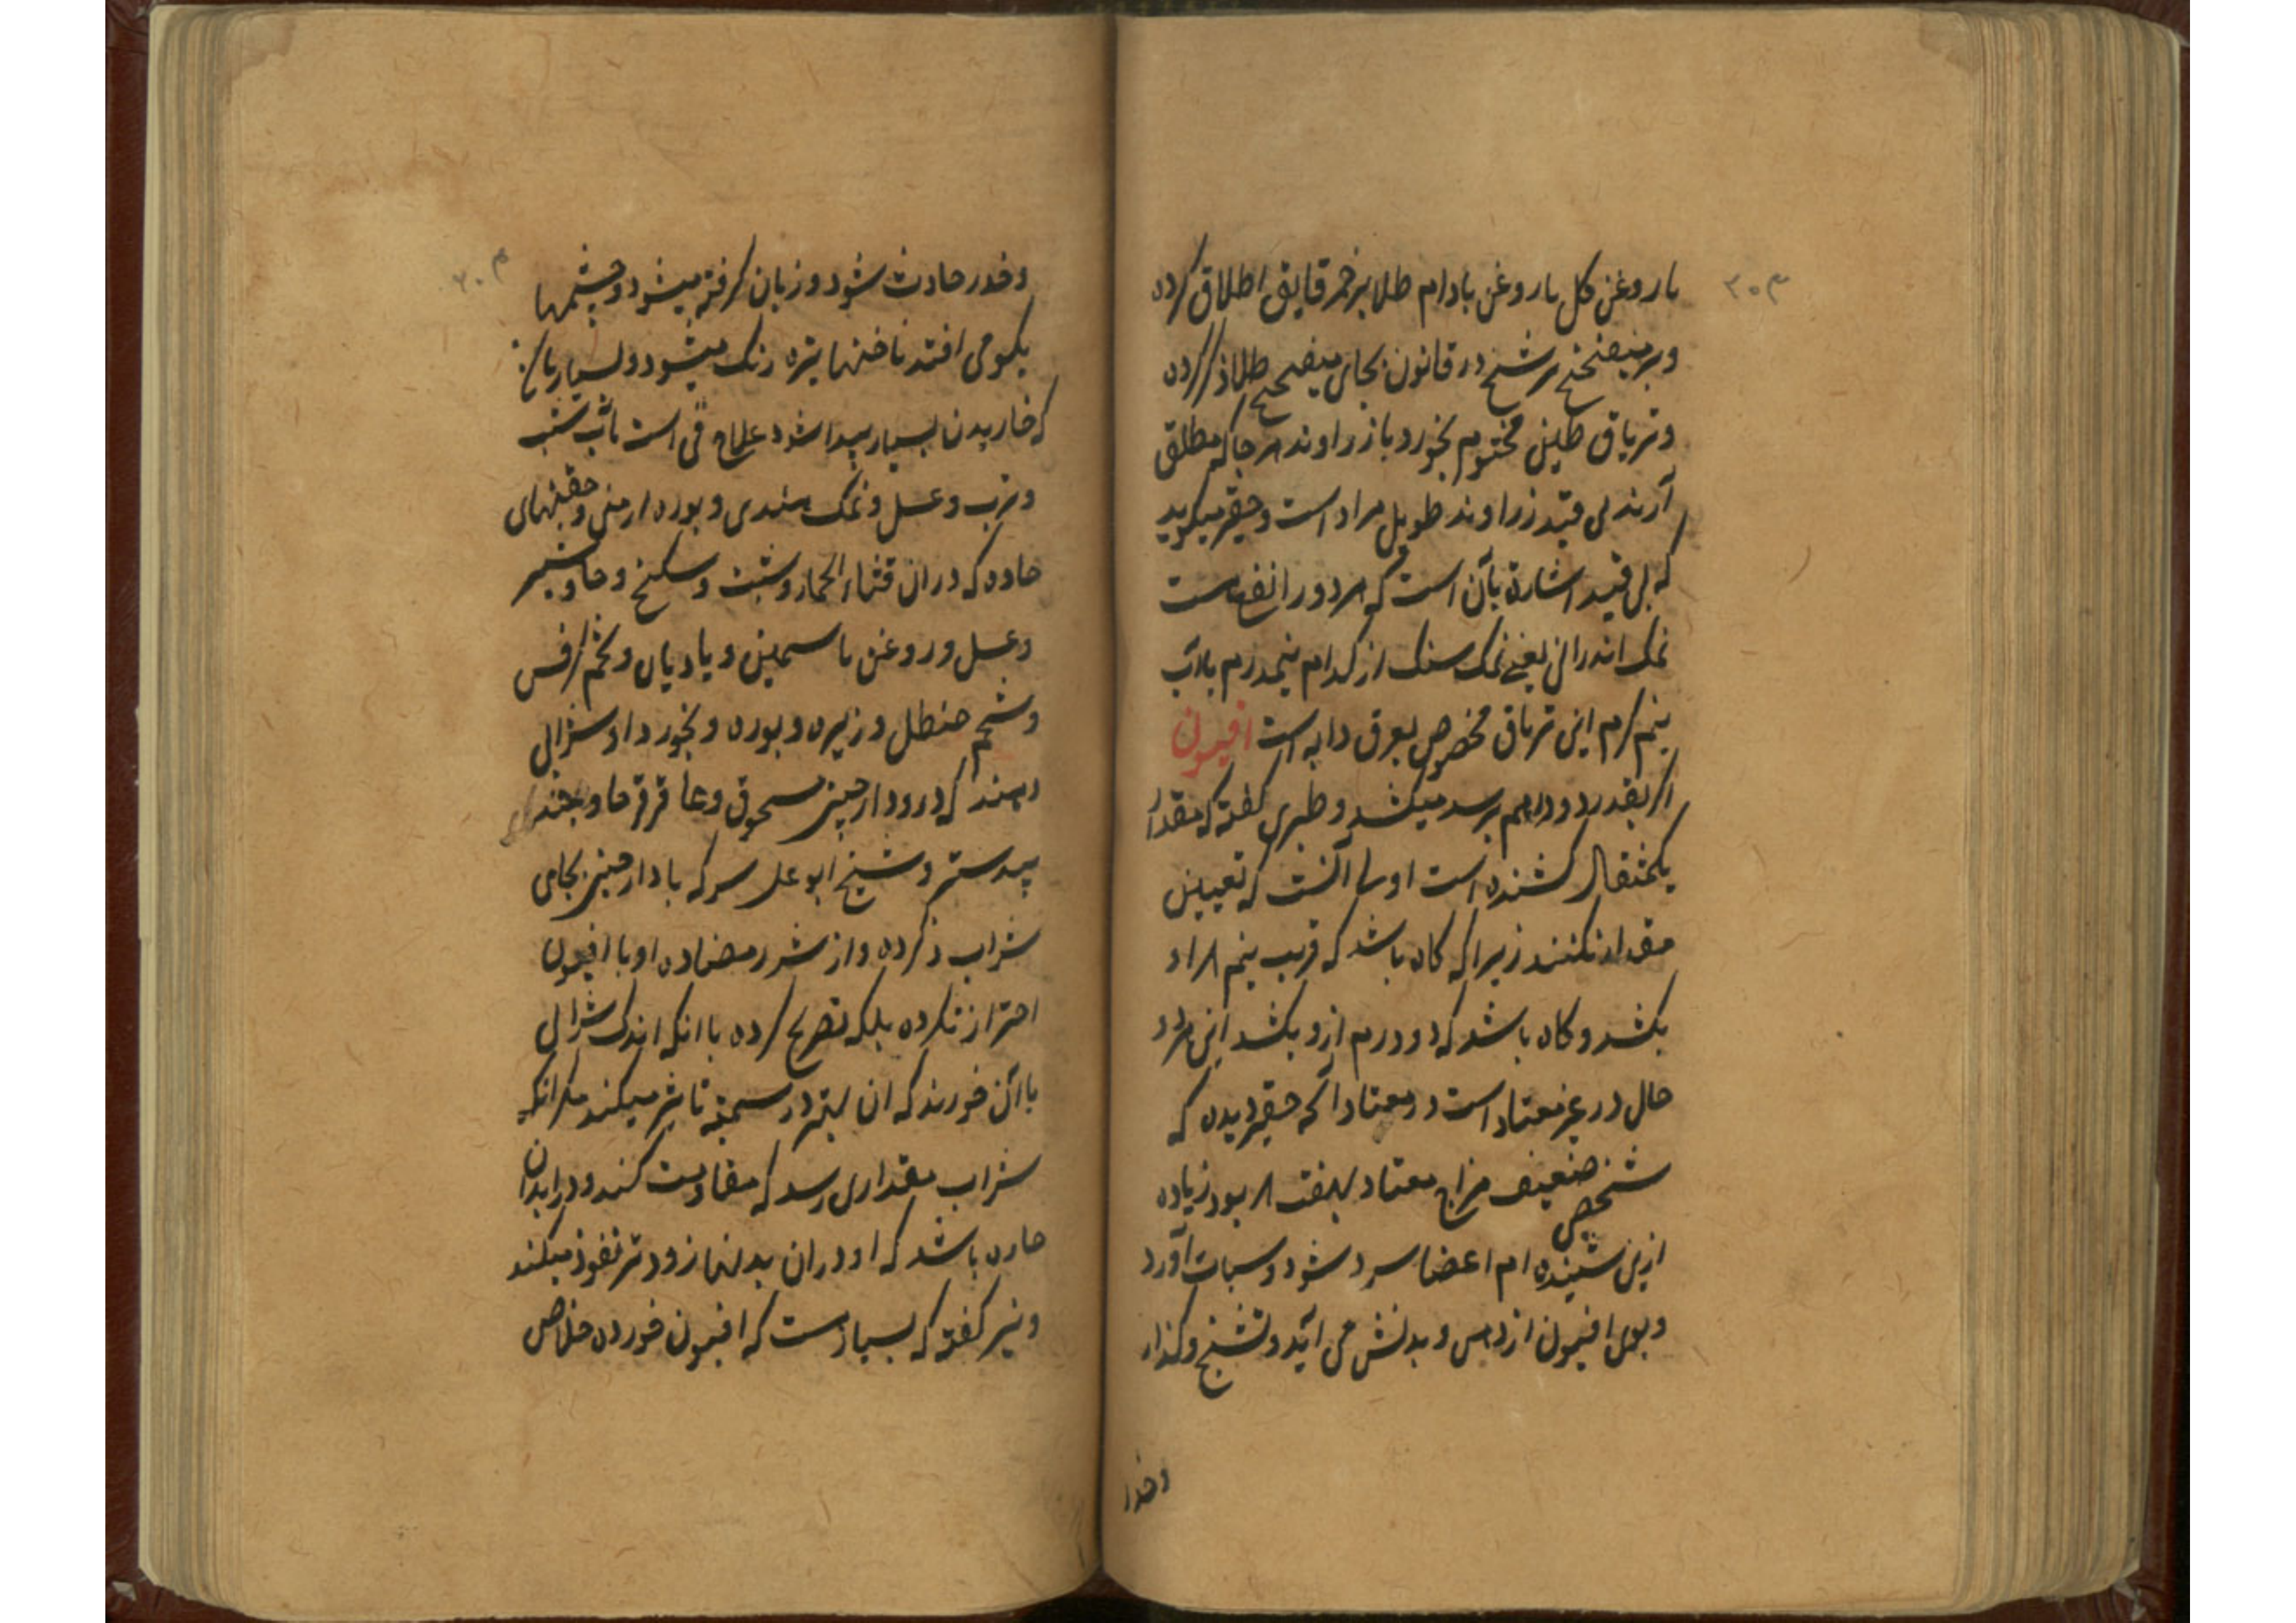 ۳۰۳
با روغن گل با روغن بادام طلا بر خمر قایق اطلاق کرده
و بر میفختج شیخ در قانون بجای میفختج طلا ذکر کرده
و تریاق طین مختوم بخورد با زراوند هر جا که مطلق
آرند بی قید زراوند طویل مراد است و حقیر میکوید
که بی قید اشارة بآن است که هر دو را نفع است
نمک اندرانی یعنی نمک سنک از کدام نیمدرم بلاب
نیم کرم این تریاق مخصوص بعرق دابه است افیون
اکر بقدر دو درهم برسد میکشد و طبری کفته که مقدار
یکمثقال کشنده است اولی آنست که تعیین
مقدار نکنند زیرا که کاه باشد که قریب نیم
بکشد و کاه باشد که دو درم ازو بکشد این هر دو
حال در غیر معتاد است در معتاد آنکه حقیر دیده که
شخص ضعیف مزاج معتاد بهفت بود زیاده
ازین شنیده ام اعضا سرد شود و سبات آورد
و بوی افیون از دهن و بدنش می آید و تشنج و کذار
و خدر
۳۰۴
و خدر حادث شود و زبان کرفته میشود و چشمها
بکو می افتد ناخنها تیره رنک میشود و بسیار باشد
که خاریدن بسیار پیدا شود علاج قی است بآب شبت
و ترب و عسل و نمک هندی و بوره ارمنی و حقنهای
حاده که در ان قثاء الحمار و شبت و سکبنج و جاوشیر
و عسل و روغن یاسمین و بادیان و تخم کرفس
و شحم حنطل و زیره و بوره و بخورد او شرابی
دهند که درو دارچینی مسحوق و عاقرقرحا و جند
بیدستر و شیخ ابو علی سرکه با دارچینی بجای
شراب ذکرده و از شر مضاده او با افیون
احتراز نکرده بلکه تصریح کرده با انکه اندک شرابی
با آن خورند که ان بهتر در سمیة تاثیر میکند مکر انکه
شراب مقداری رسد که مقاومت کند و در ابدان
حاره باشد که او در ان بدنها زودتر نفوذ میکند
و نیز کفته که بسیار است که افیون خورده خلاص